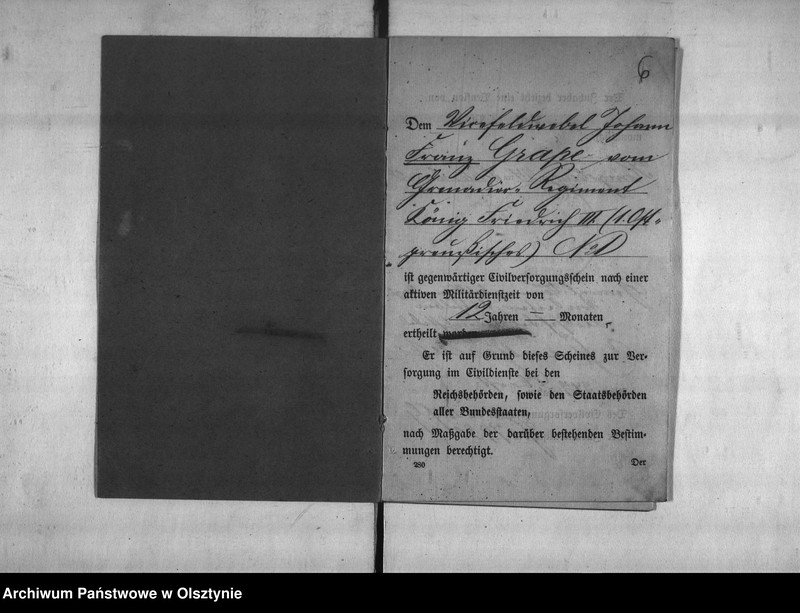 6
Dem Vicefeldwebel Johann
Franz Grape vom
Grenadier-Regiment
König Friedrich III (1. Ost-
preußisches) No 1
ist gegenwärtiger Civilversorgungsschein nach einer
aktiven Militärdienstzeit von
12 Jahren — Monaten
ertheilt worden
Er ist auf Grund dieses Scheines zur Ver-
sorgung im Civildienste bei den
Reichsbehörden, sowie den Staatsbehörden
aller Bundesstaaten,
nach Maßgabe der darüber bestehenden Bestim-
mungen berechtigt.
280 Der
Archiwum Państwowe w Olsztynie